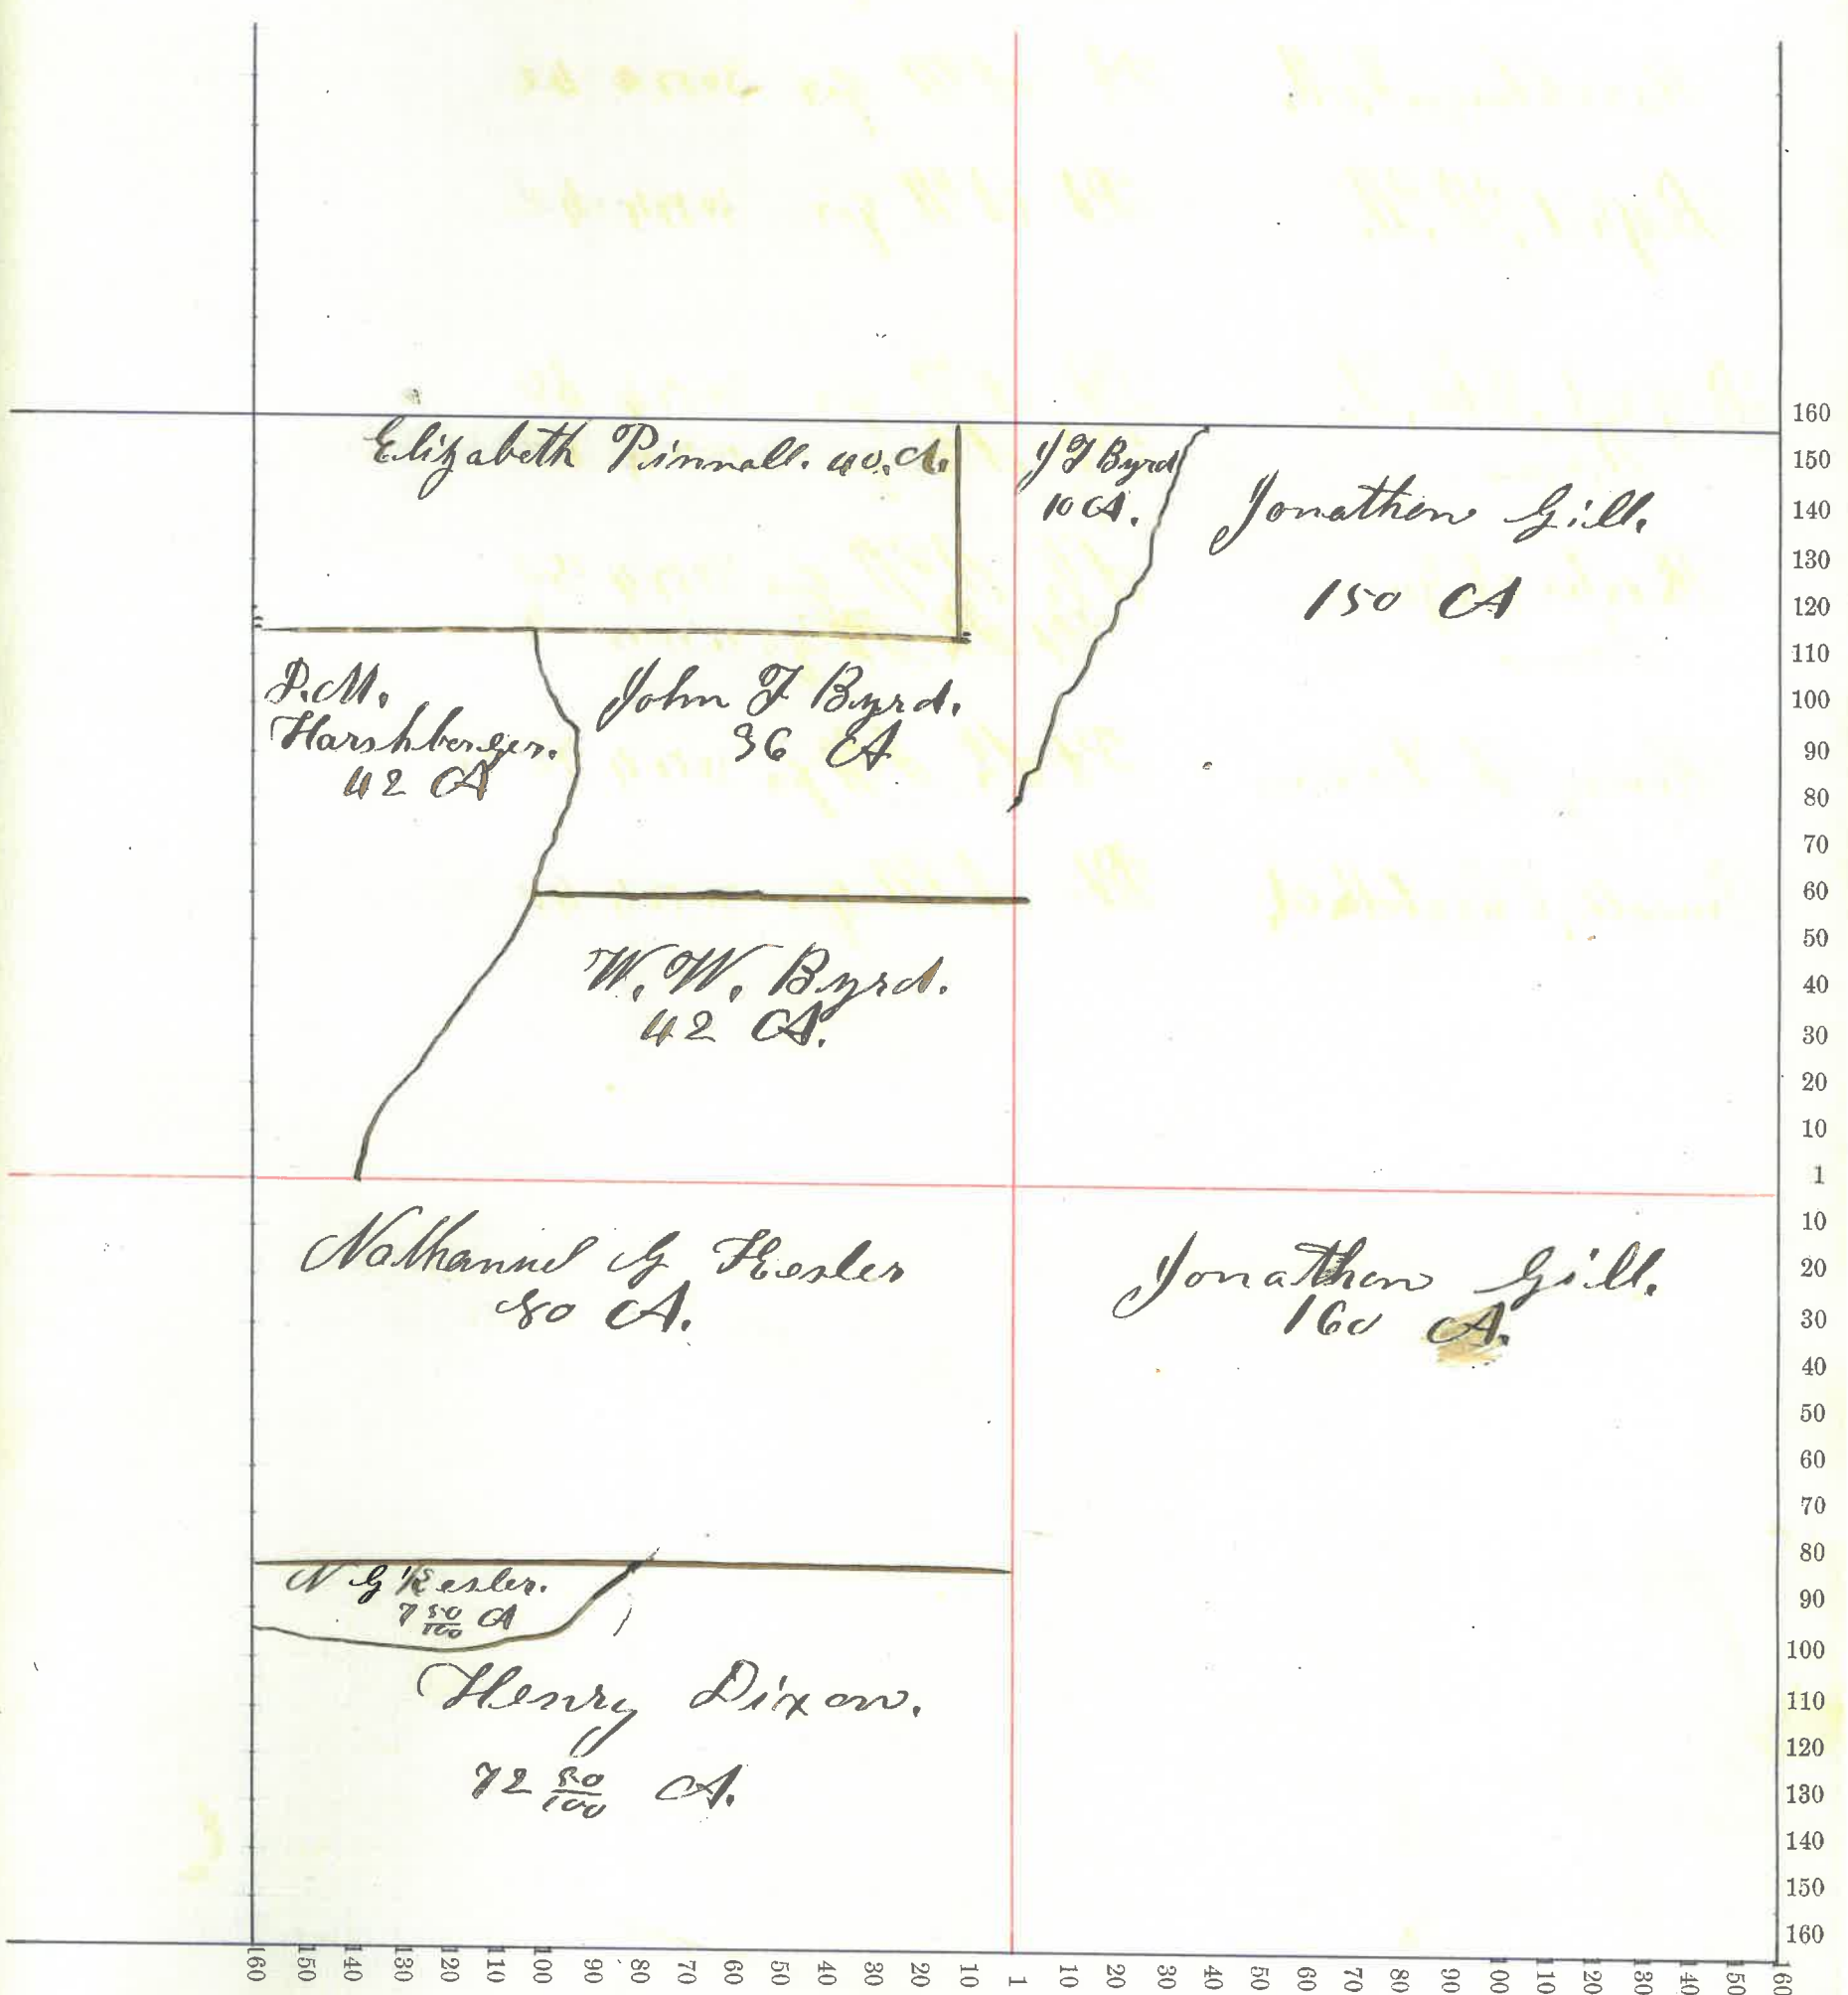 Elizabeth Pinnall. 40. A.
J F Byrd
10 A.
Jonathen Gill.
150 A
P. M.
Harshberger.
42 A
John F Byrd.
36 A
W. W. Byrd.
42 A.
Nathannel G Kesler
80 A.
Jonathen Gill.
160 A.
N G Kesler.
7 50/100 A
Henry Dixon.
72 50/100 A.
160
150
140
130
120
110
100
90
80
70
60
50
40
30
20
10
1
10
20
30
40
50
60
70
80
90
100
110
120
130
140
150
160
160 150 140 130 120 110 100 90 80 70 60 50 40 30 20 10 1 10 20 30 40 50 60 70 80 90 100 110 120 130 140 150 160